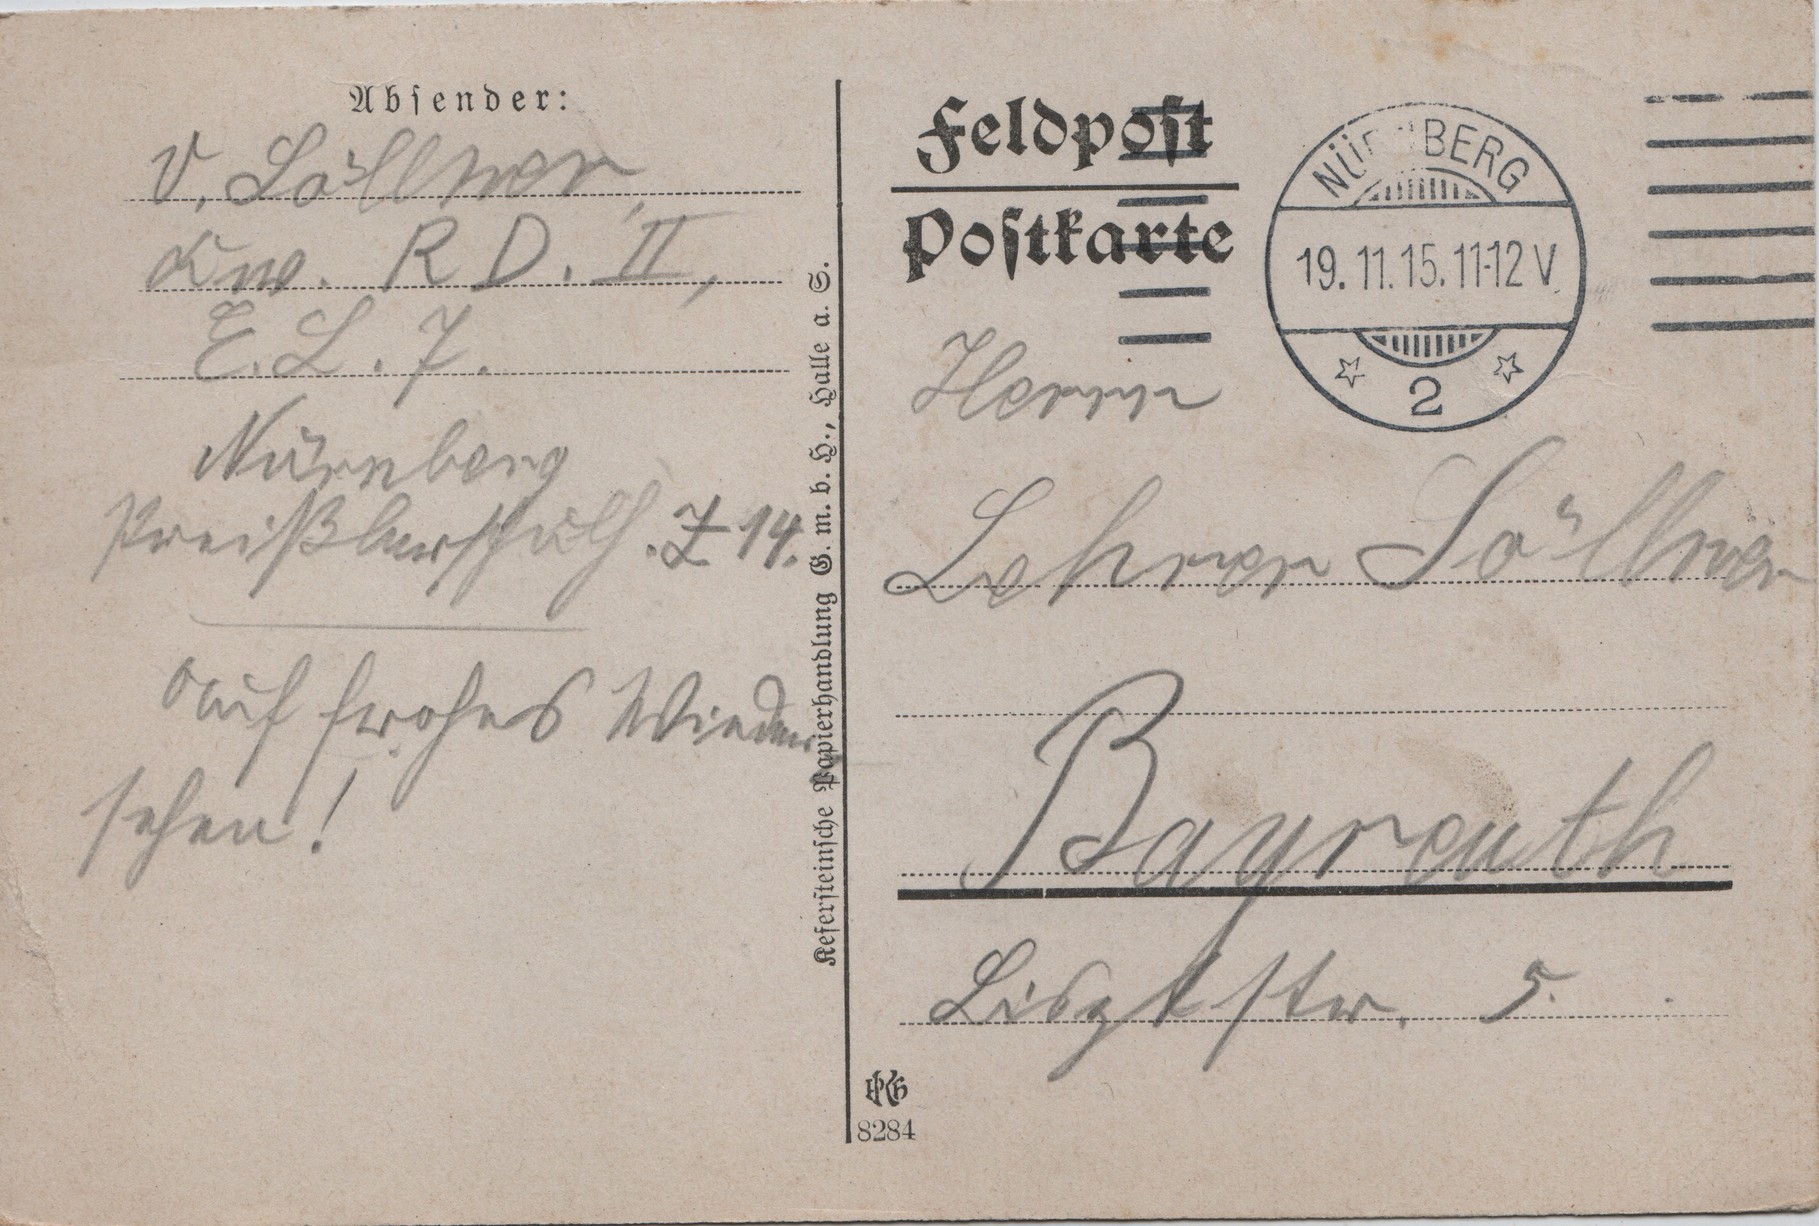 Absender:
V. Söllner,
R D. II,
E. L. 7.
Nürnberg
Preißlerschulh. Z 14.
auf frohes Wieder
sehen!
Kefersteinsche Papierhandlung G. m. b. H., Halle a. S.
Feldpost
Postkarte
NÜRNBERG
19. 11. 15. 11-12 V.
2
Herrn
Lehrer Söllner
Bayreuth
Lisztstr. 5.
8284